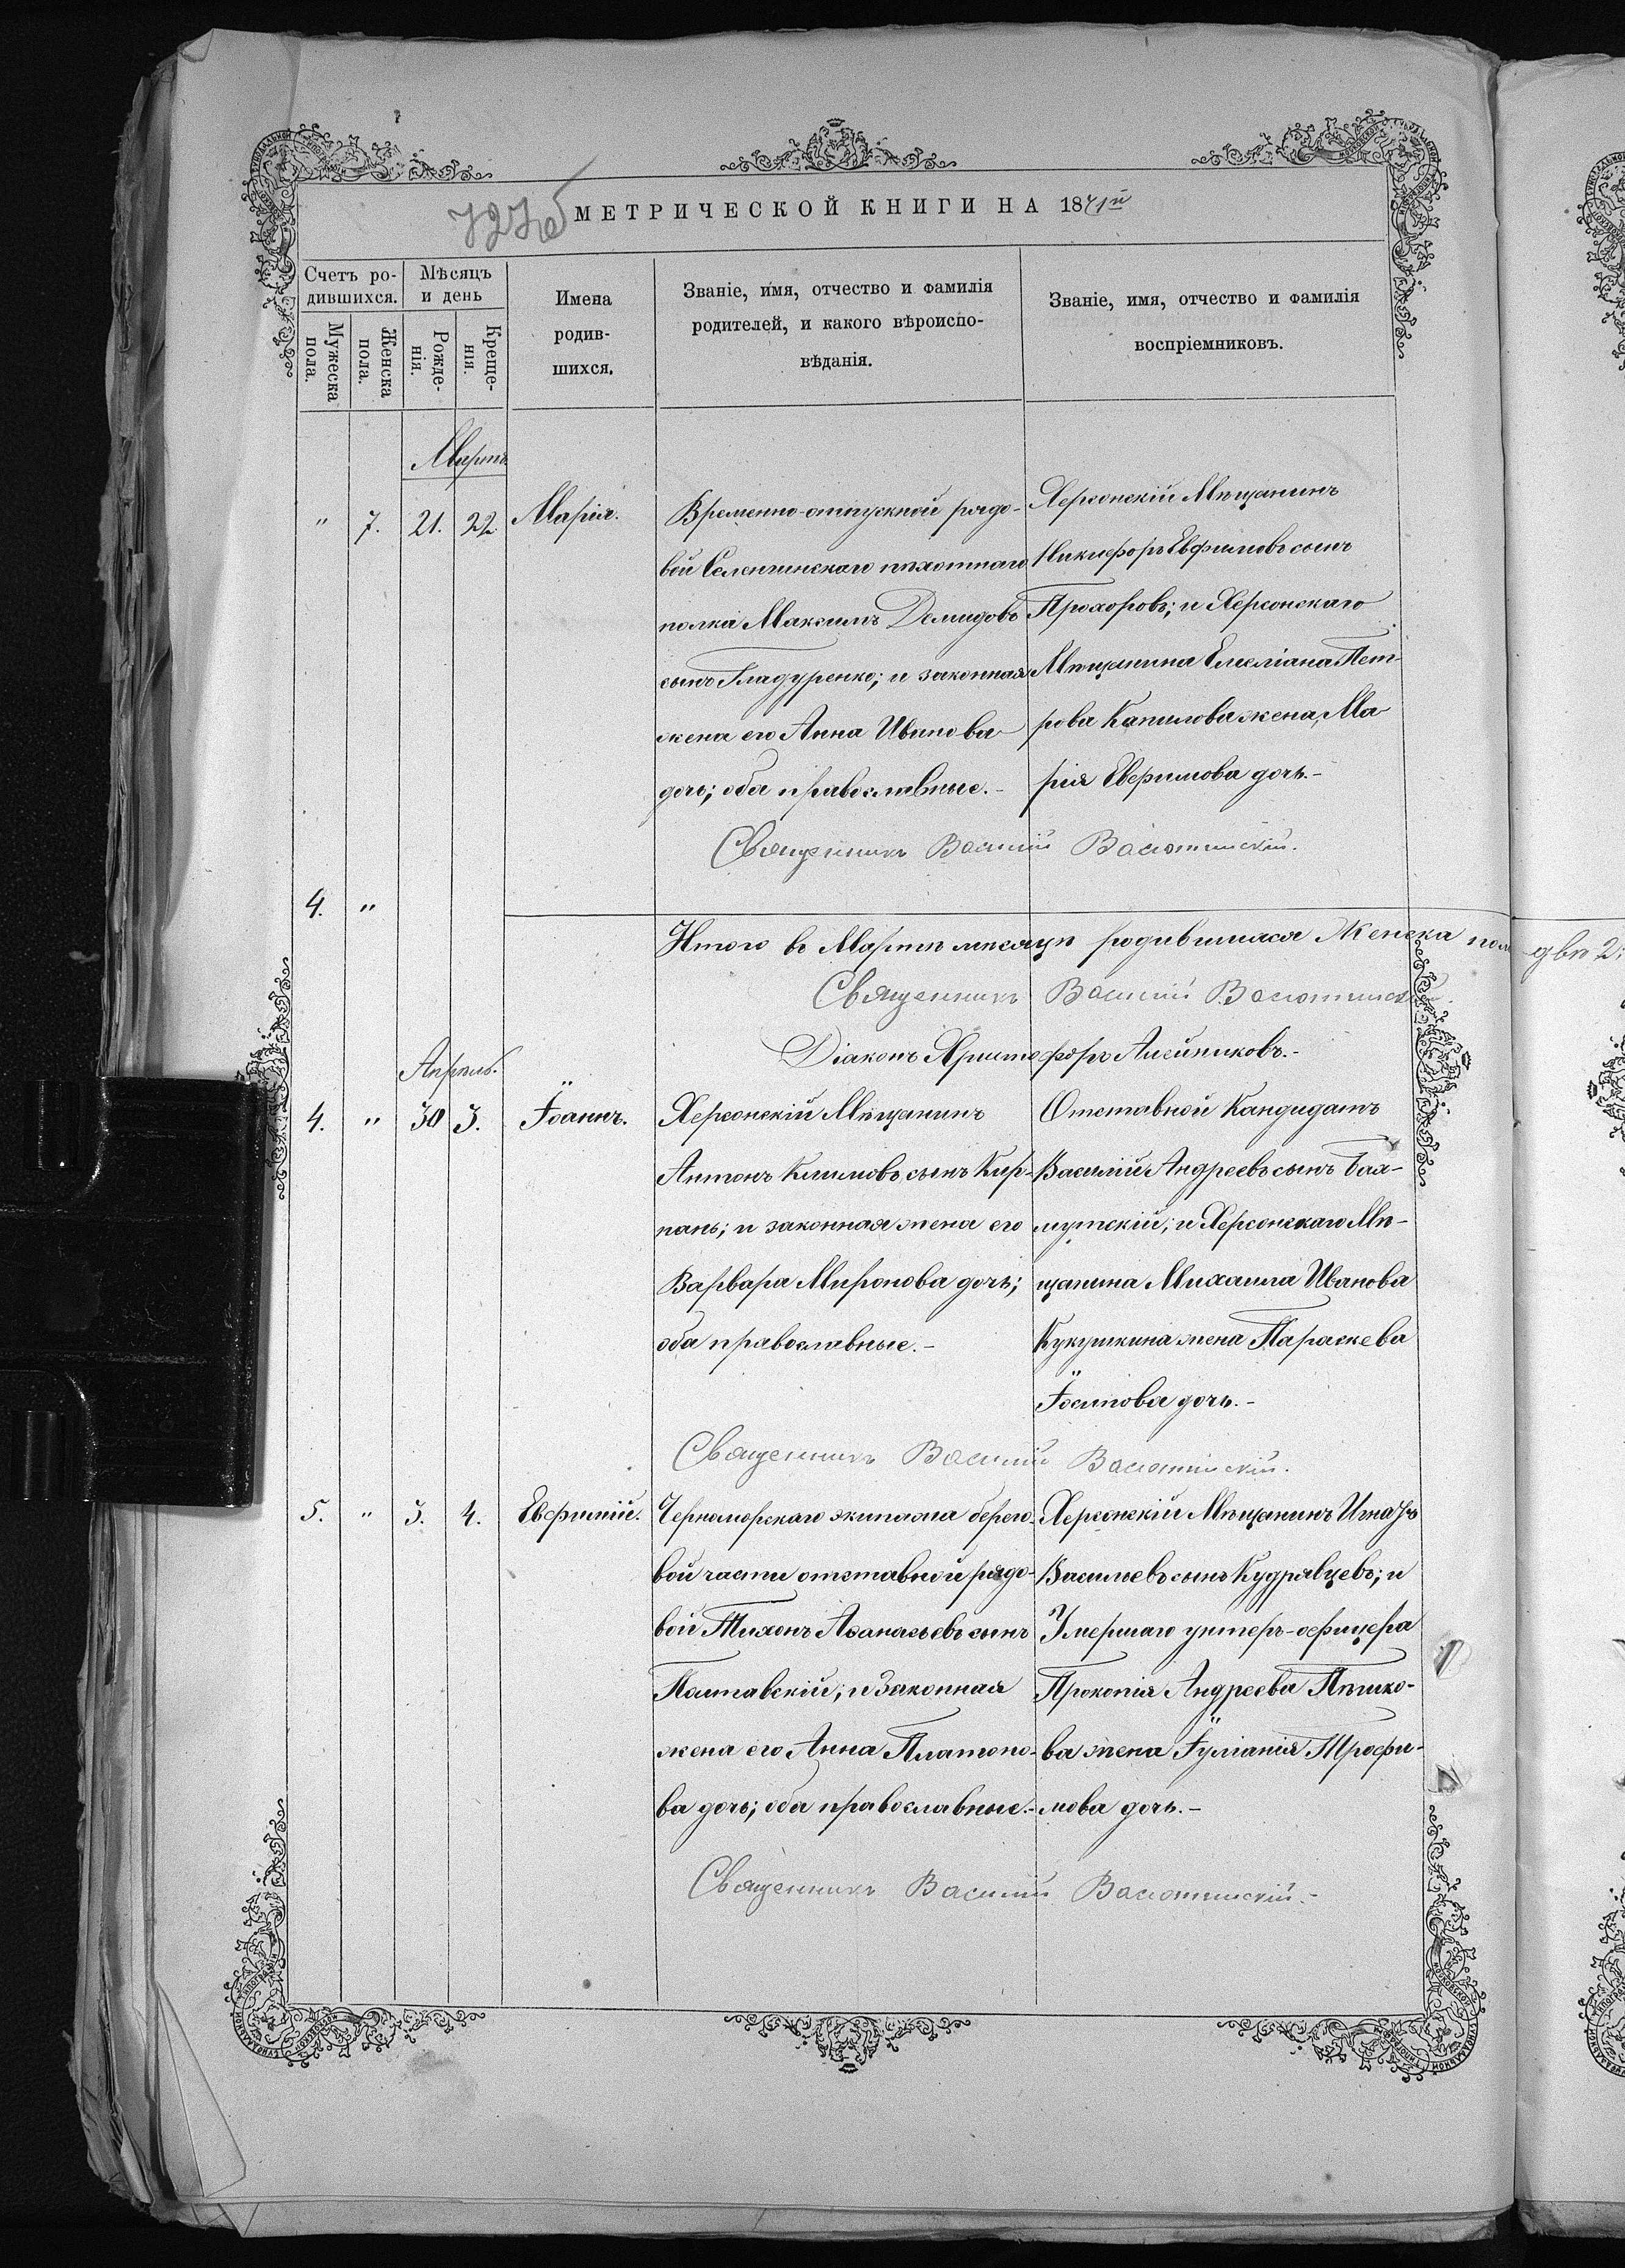 МЕТРИЧЕСКОЙ КНИГИ НА 1871й
Счетъ ро-
дившихся.
Мѣсяцъ
и день
Мужеска
пола.
Женска
пола.
Рожде-
нія.
Креще-
нія.
Имена
родив-
шихся.
Званіе, имя, отчество и фамилія
родителей, и какого вѣроиспо-
вѣданія.
Званіе, имя, отчество и фамилія
воспріемниковъ.
Мартъ
" 7. 21. 22. Марія.
Временно-отпускной рядо-
вой Селенгинскаго пѣхотнаго
полка Максимъ Демидовъ
сынъ Гладуренко; и законная
жена его Анна Иванова
дочь; оба православные.-
Херсонскій Мѣщанинъ
Никифоръ Евфимовъ сынъ
Прохоровъ; и Херсонскаго
Мѣщанина Емеліана Пет-
рова Капилова жена, Ма-
рія Евфимова дочь.-
Священникъ Василій Васютинскій.
4. "
Итого въ Мартѣ мѣсяцѣ родившихся Женска пола двѣ 2.
Священникъ Василій Васютинскій.
Діаконъ Христофоръ Алейниковъ.-
Апрѣль.
4. " 30 3. Іоаннъ.
Херсонскій Мѣщанинъ
Антонъ Климовъ сынъ Кир-
панъ; и законная жена его
Варвара Миронова дочь;
оба православные.-
Отставной Кандидатъ
Василій Андреевъ сынъ Бах-
мутскій; и Херсонскаго Мѣ-
щанина Михаила Иванова
Кукушкина жена Параскева
Іосипова дочь.-
Священникъ Василій Васютинскій.
5. " 3. 4. Евфимій.
Черноморскаго экипажа берего-
вой части отставной рядо-
вой Тихонъ Аѳанасьевъ сынъ
Полтавскій; и законная
жена его Анна Платоно-
ва дочь; оба православные.-
Херсонскій Мѣщанинъ Игнатъ
Васильевъ сынъ Кудрявцевъ; и
Умершаго унтеръ-офицера
Прокопія Андреева Пѣшко-
ва жена Іуліанія Трофи-
мова дочь.-
Священникъ Василій Васютинскій.-